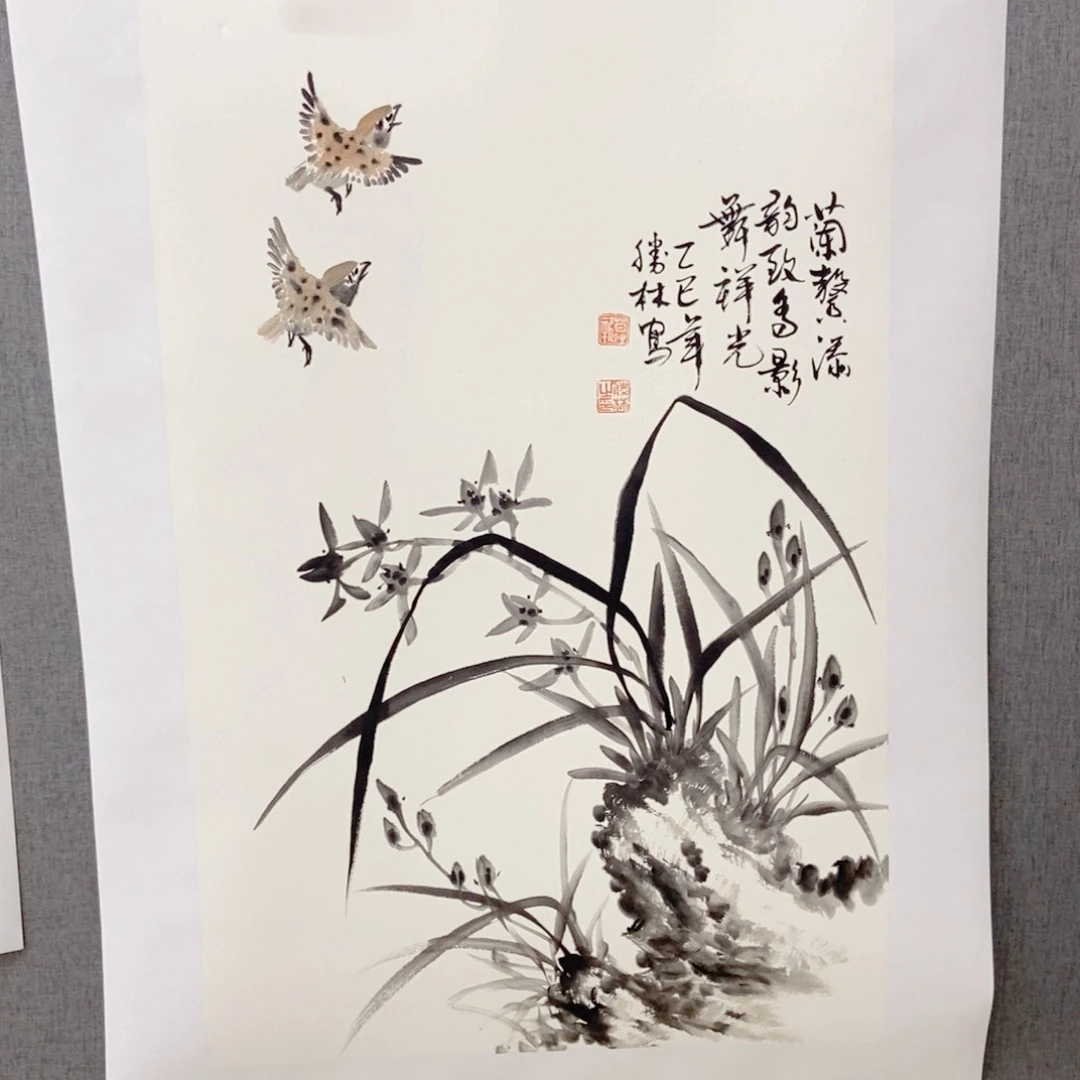 蘭馨添
韵致鸟影
舞祥光
乙巳年
勝林寫